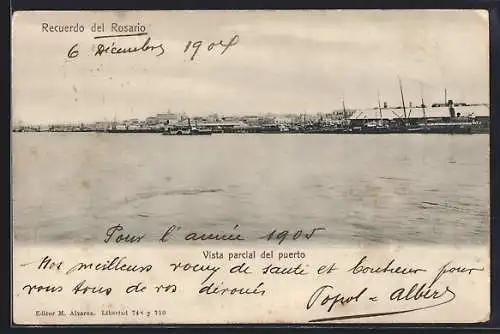 Recuerdo del Rosario
6 Décembre 1904
Pour l'année 1905
Vista parcial del puerto
Nos meilleurs voeux de santé et bonheur pour
vous tous de vos dévoués
Popol - Albert
Editor M. Alvarez. Libertad 748 y 750